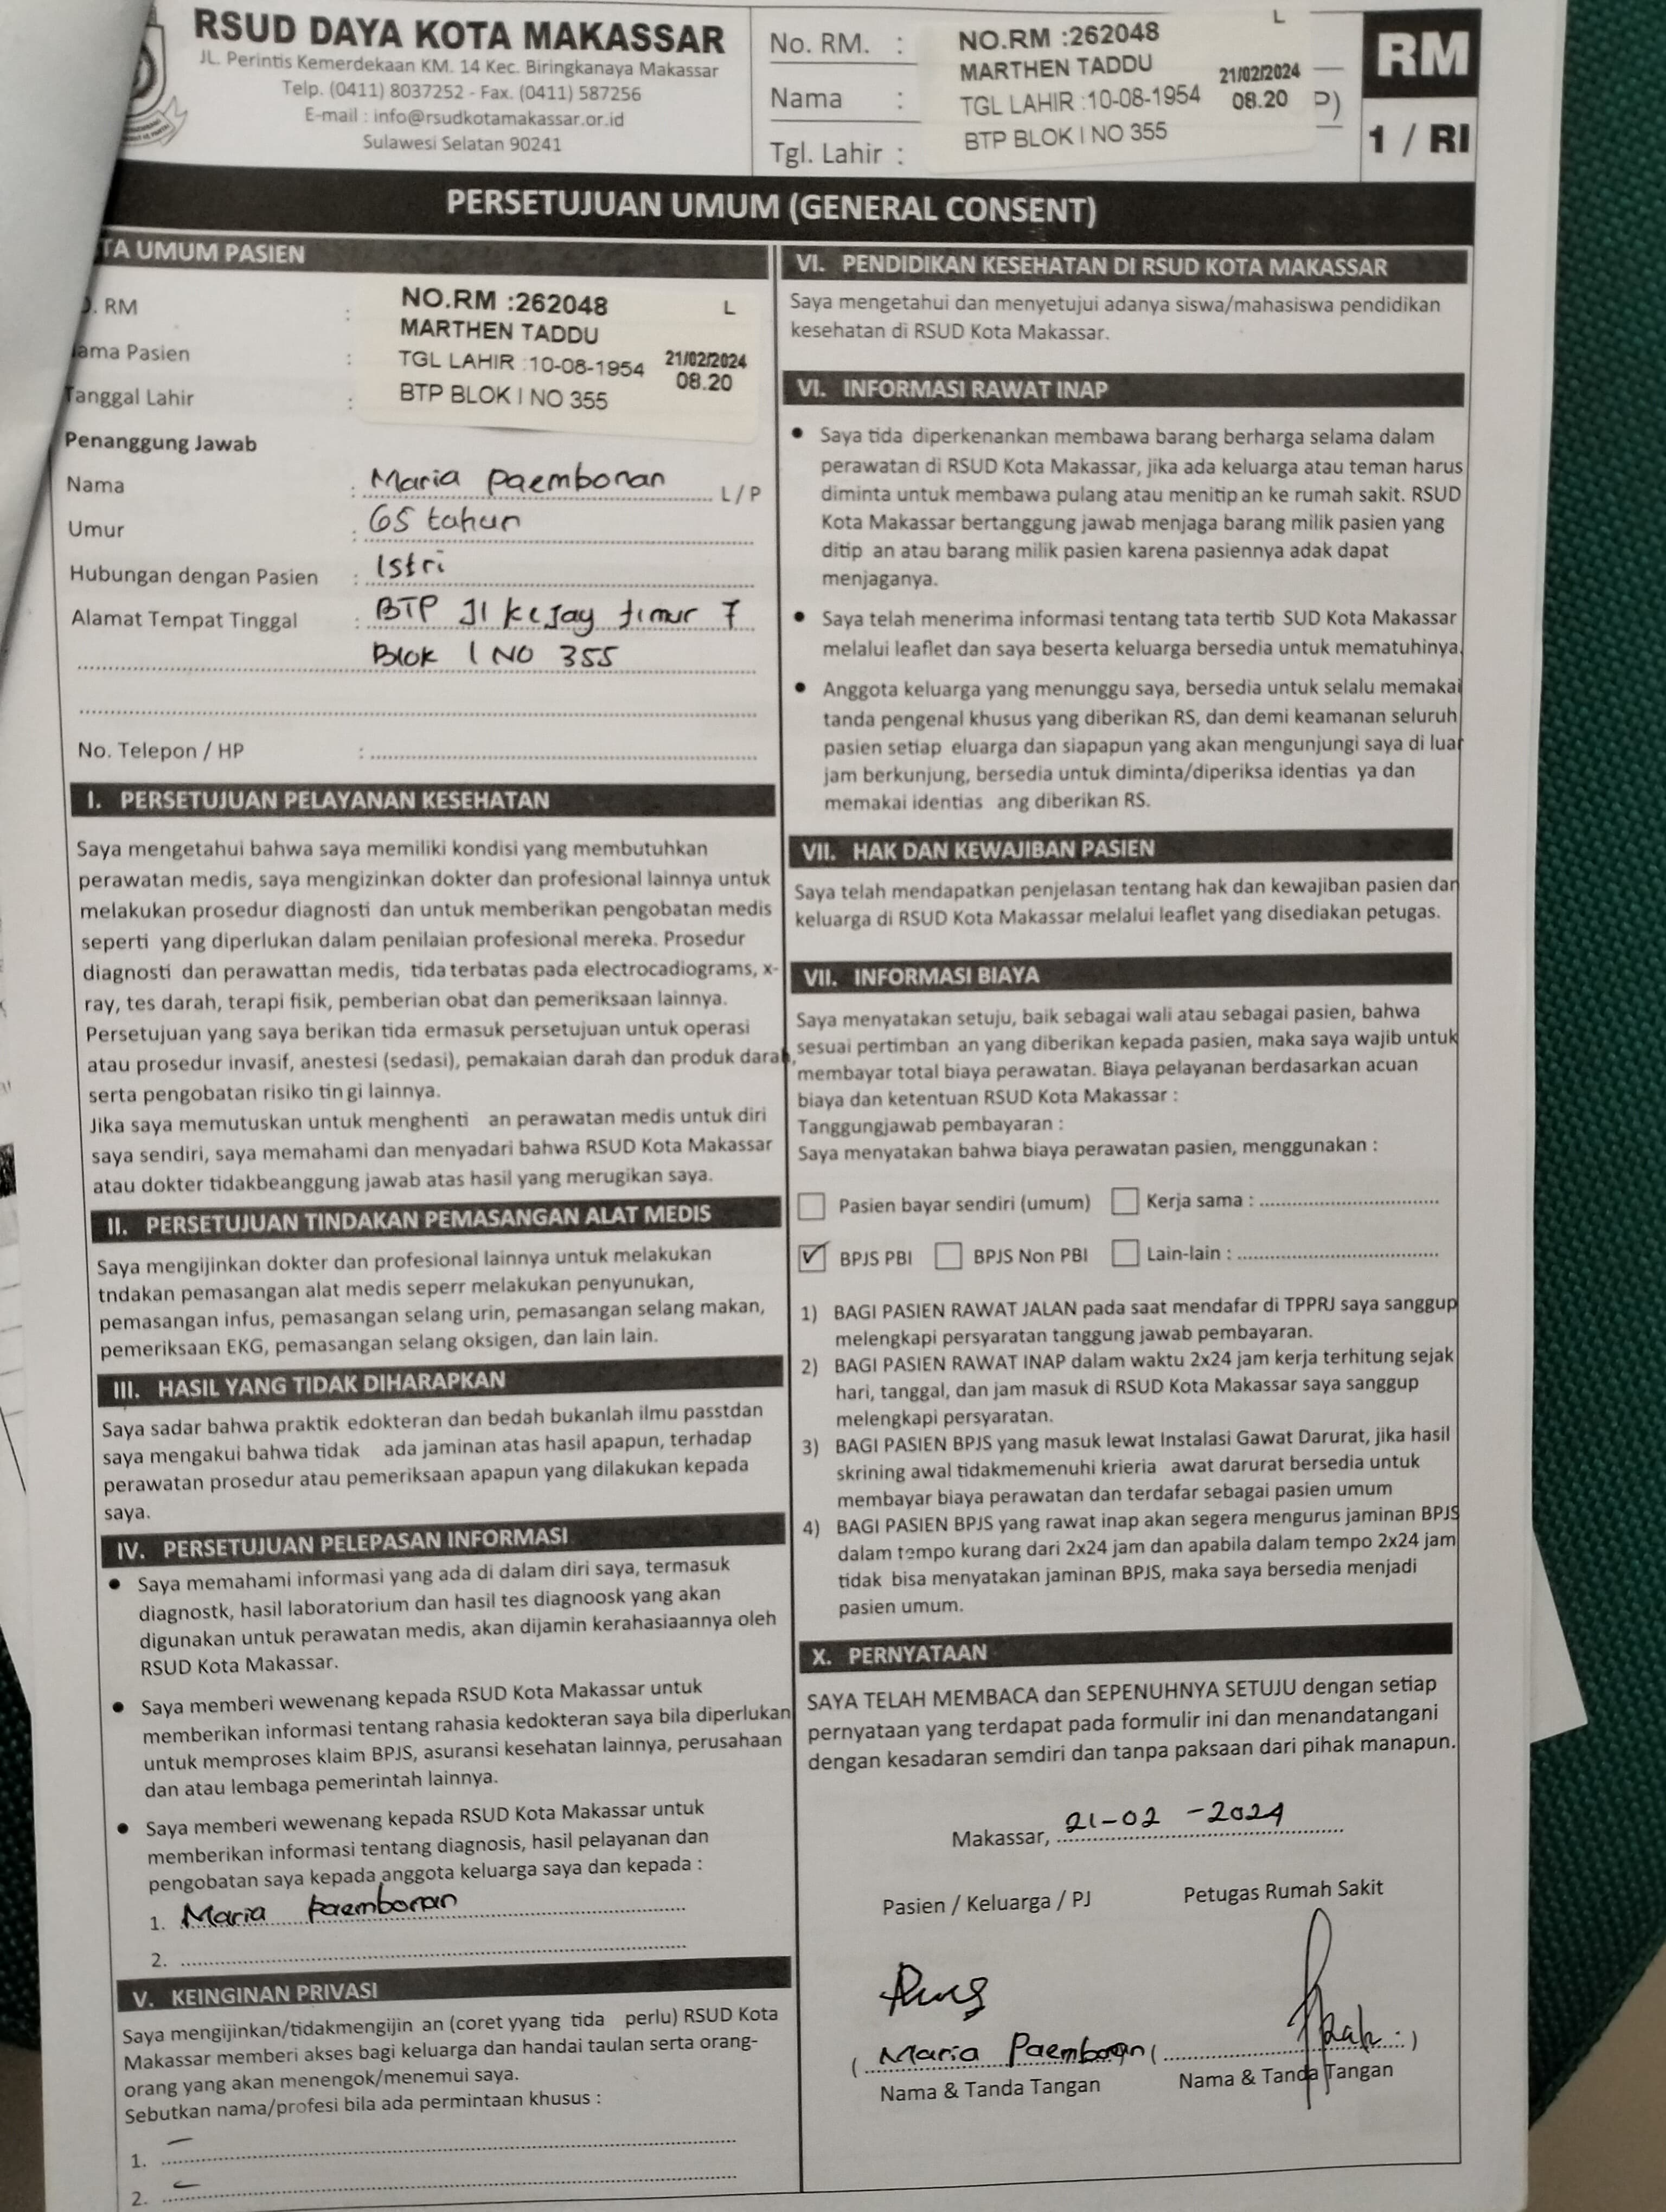 RSUD DAYA KOTA MAKASSAR
JL. Perintis Kemerdekaan KM. 14 Kec. Biringkanaya Makassar
Telp. (0411) 8037252 - Fax. (0411) 587256
E-mail : info@rsudkotamakassar.or.id
Sulawesi Selatan 90241
No. RM. :
Nama :
Tgl. Lahir :
L
NO.RM :262048
MARTHEN TADDU
TGL LAHIR :10-08-1954
21/02/2024
08.20
BTP BLOK I NO 355
P)
RM
1 / RI
PERSETUJUAN UMUM (GENERAL CONSENT)
TA UMUM PASIEN
. RM :
ama Pasien :
Tanggal Lahir :
NO.RM :262048 L
MARTHEN TADDU
TGL LAHIR :10-08-1954 21/02/2024
08.20
BTP BLOK I NO 355
Penanggung Jawab
Nama : Maria Paembonan L / P
Umur : 65 tahun
Hubungan dengan Pasien : Istri
Alamat Tempat Tinggal : BTP Jl kejay timur 7
Blok I NO 355
No. Telepon / HP :
I. PERSETUJUAN PELAYANAN KESEHATAN
Saya mengetahui bahwa saya memiliki kondisi yang membutuhkan
perawatan medis, saya mengizinkan dokter dan profesional lainnya untuk
melakukan prosedur diagnosti dan untuk memberikan pengobatan medis
seperti yang diperlukan dalam penilaian profesional mereka. Prosedur
diagnosti dan perawattan medis, tida terbatas pada electrocadiograms, x-
ray, tes darah, terapi fisik, pemberian obat dan pemeriksaan lainnya.
Persetujuan yang saya berikan tida ermasuk persetujuan untuk operasi
atau prosedur invasif, anestesi (sedasi), pemakaian darah dan produk darah,
serta pengobatan risiko tin gi lainnya.
Jika saya memutuskan untuk menghenti an perawatan medis untuk diri
saya sendiri, saya memahami dan menyadari bahwa RSUD Kota Makassar
atau dokter tidakbeanggung jawab atas hasil yang merugikan saya.
II. PERSETUJUAN TINDAKAN PEMASANGAN ALAT MEDIS
Saya mengijinkan dokter dan profesional lainnya untuk melakukan
tndakan pemasangan alat medis seperr melakukan penyunukan,
pemasangan infus, pemasangan selang urin, pemasangan selang makan,
pemeriksaan EKG, pemasangan selang oksigen, dan lain lain.
III. HASIL YANG TIDAK DIHARAPKAN
Saya sadar bahwa praktik edokteran dan bedah bukanlah ilmu passtdan
saya mengakui bahwa tidak ada jaminan atas hasil apapun, terhadap
perawatan prosedur atau pemeriksaan apapun yang dilakukan kepada
saya.
IV. PERSETUJUAN PELEPASAN INFORMASI
• Saya memahami informasi yang ada di dalam diri saya, termasuk
diagnostk, hasil laboratorium dan hasil tes diagnoosk yang akan
digunakan untuk perawatan medis, akan dijamin kerahasiaannya oleh
RSUD Kota Makassar.
• Saya memberi wewenang kepada RSUD Kota Makassar untuk
memberikan informasi tentang rahasia kedokteran saya bila diperlukan
untuk memproses klaim BPJS, asuransi kesehatan lainnya, perusahaan
dan atau lembaga pemerintah lainnya.
• Saya memberi wewenang kepada RSUD Kota Makassar untuk
memberikan informasi tentang diagnosis, hasil pelayanan dan
pengobatan saya kepada anggota keluarga saya dan kepada :
1. Maria Paembonan
2.
V. KEINGINAN PRIVASI
Saya mengijinkan/tidakmengijin an (coret yyang tida perlu) RSUD Kota
Makassar memberi akses bagi keluarga dan handai taulan serta orang-
orang yang akan menengok/menemui saya.
Sebutkan nama/profesi bila ada permintaan khusus :
1. –
2. –
VI. PENDIDIKAN KESEHATAN DI RSUD KOTA MAKASSAR
Saya mengetahui dan menyetujui adanya siswa/mahasiswa pendidikan
kesehatan di RSUD Kota Makassar.
VI. INFORMASI RAWAT INAP
• Saya tida diperkenankan membawa barang berharga selama dalam
perawatan di RSUD Kota Makassar, jika ada keluarga atau teman harus
diminta untuk membawa pulang atau menitip an ke rumah sakit. RSUD
Kota Makassar bertanggung jawab menjaga barang milik pasien yang
ditip an atau barang milik pasien karena pasiennya adak dapat
menjaganya.
• Saya telah menerima informasi tentang tata tertib SUD Kota Makassar
melalui leaflet dan saya beserta keluarga bersedia untuk mematuhinya.
• Anggota keluarga yang menunggu saya, bersedia untuk selalu memakai
tanda pengenal khusus yang diberikan RS, dan demi keamanan seluruh
pasien setiap eluarga dan siapapun yang akan mengunjungi saya di luar
jam berkunjung, bersedia untuk diminta/diperiksa identias ya dan
memakai identias ang diberikan RS.
VII. HAK DAN KEWAJIBAN PASIEN
Saya telah mendapatkan penjelasan tentang hak dan kewajiban pasien dan
keluarga di RSUD Kota Makassar melalui leaflet yang disediakan petugas.
VII. INFORMASI BIAYA
Saya menyatakan setuju, baik sebagai wali atau sebagai pasien, bahwa
sesuai pertimban an yang diberikan kepada pasien, maka saya wajib untuk
membayar total biaya perawatan. Biaya pelayanan berdasarkan acuan
biaya dan ketentuan RSUD Kota Makassar :
Tanggungjawab pembayaran :
Saya menyatakan bahwa biaya perawatan pasien, menggunakan :
☐ Pasien bayar sendiri (umum) ☐ Kerja sama :
☑ BPJS PBI ☐ BPJS Non PBI ☐ Lain-lain :
1) BAGI PASIEN RAWAT JALAN pada saat mendafar di TPPRJ saya sanggup
melengkapi persyaratan tanggung jawab pembayaran.
2) BAGI PASIEN RAWAT INAP dalam waktu 2x24 jam kerja terhitung sejak
hari, tanggal, dan jam masuk di RSUD Kota Makassar saya sanggup
melengkapi persyaratan.
3) BAGI PASIEN BPJS yang masuk lewat Instalasi Gawat Darurat, jika hasil
skrining awal tidakmemenuhi krieria awat darurat bersedia untuk
membayar biaya perawatan dan terdafar sebagai pasien umum
4) BAGI PASIEN BPJS yang rawat inap akan segera mengurus jaminan BPJS
dalam tempo kurang dari 2x24 jam dan apabila dalam tempo 2x24 jam
tidak bisa menyatakan jaminan BPJS, maka saya bersedia menjadi
pasien umum.
X. PERNYATAAN
SAYA TELAH MEMBACA dan SEPENUHNYA SETUJU dengan setiap
pernyataan yang terdapat pada formulir ini dan menandatangani
dengan kesadaran semdiri dan tanpa paksaan dari pihak manapun.
Makassar, 21-02-2024
Pasien / Keluarga / PJ Petugas Rumah Sakit
( Maria Paembonan ( )
Nama & Tanda Tangan Nama & Tanda Tangan